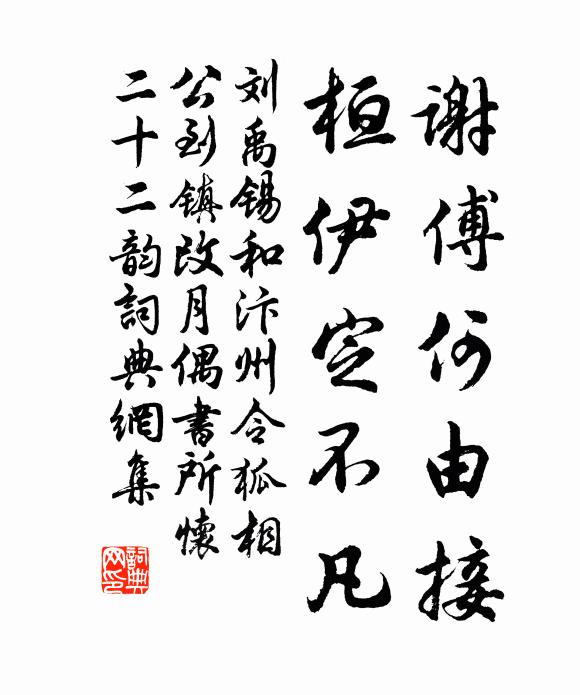 谢傅何由接
桓伊定不凡
刘禹锡和汴州令狐相
公到镇改月偶书所怀
二十二韵詞典網集
詞典
网印